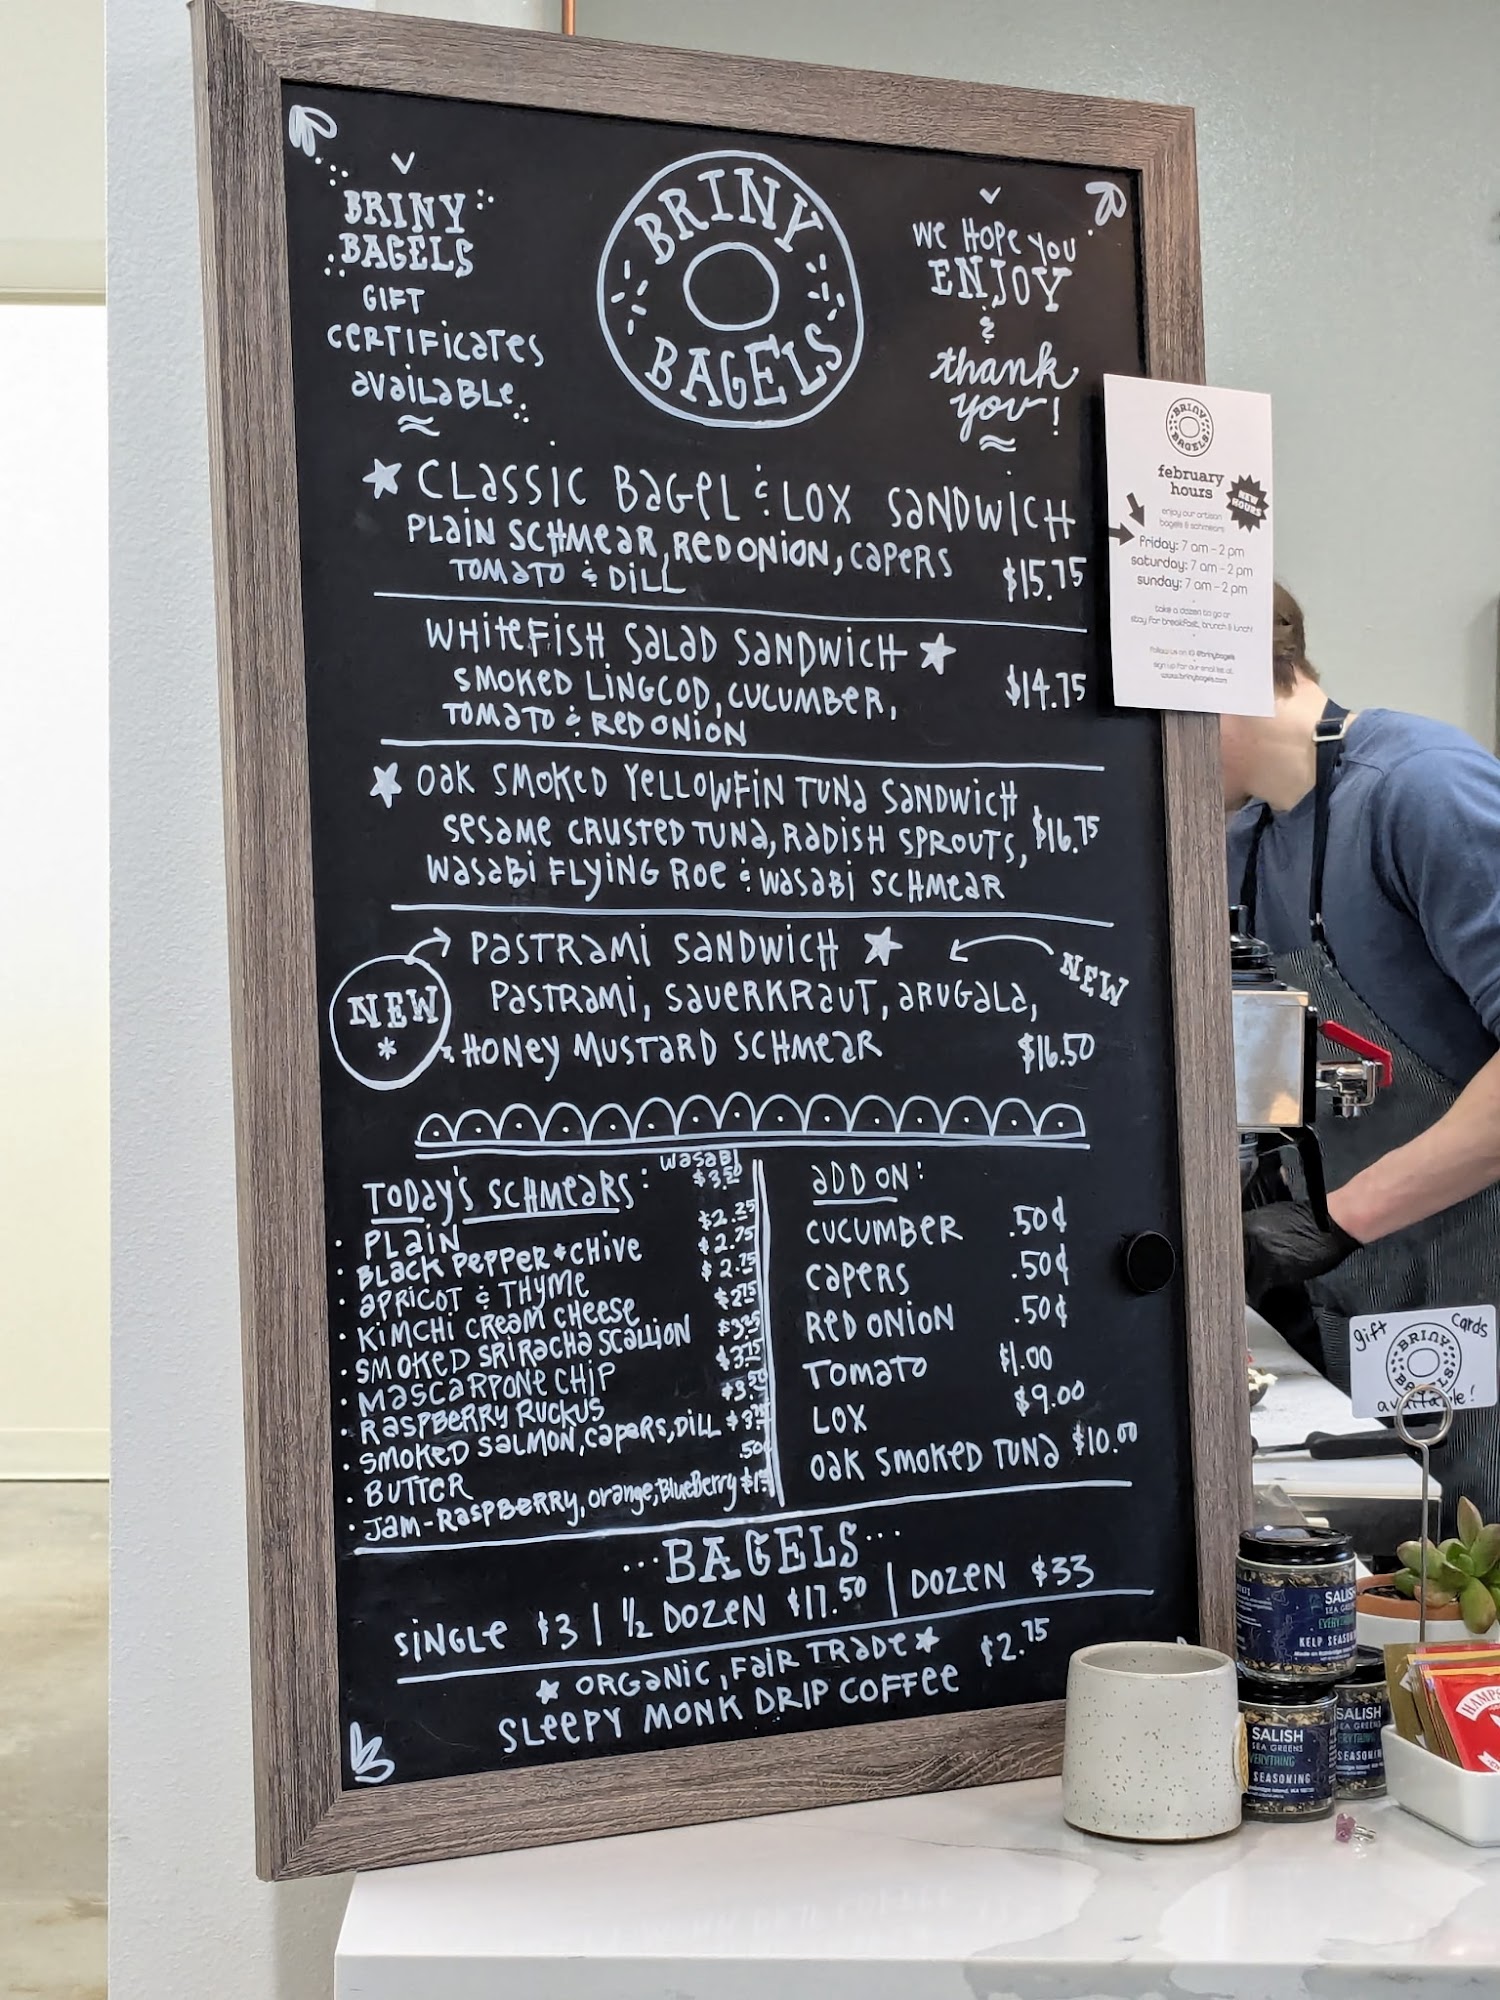 BRINY
BAGELS
GIFT
CERTIFICATES
AVAILABLE
BRINY
BAGELS
WE HOPE YOU
ENJOY
&
thank
you!
CLASSIC BAGEL & LOX SANDWICH
PLAIN SCHMEAR, RED ONION, CAPERS
TOMATO & DILL $15.75
WHITEFISH SALAD SANDWICH
SMOKED LINGCOD, CUCUMBER, $14.75
TOMATO & RED ONION
OAK SMOKED YELLOWFIN TUNA SANDWICH
SESAME CRUSTED TUNA, RADISH SPROUTS, $16.75
WASABI FLYING ROE & WASABI SCHMEAR
PASTRAMI SANDWICH
NEW
NEW
*
PASTRAMI, SAUERKRAUT, ARUGALA,
& HONEY MUSTARD SCHMEAR $16.50
TODAY'S SCHMEARS: WASABI $3.50
• PLAIN $2.25
• BLACK PEPPER + CHIVE $2.75
• APRICOT & THYME $2.75
• KIMCHI CREAM CHEESE $2.75
• SMOKED SRIRACHA SCALLION
• MASCARPONE CHIP
• RASPBERRY RUCKUS
• SMOKED SALMON, CAPERS, DILL
• BUTTER .50¢
• JAM - RASPBERRY, ORANGE, BLUEBERRY
ADD ON:
CUCUMBER .50¢
CAPERS .50¢
RED ONION .50¢
TOMATO $1.00
LOX $9.00
OAK SMOKED TUNA $10.00
...BAGELS...
SINGLE $3 | ½ DOZEN $17.50 | DOZEN $33
ORGANIC, FAIR TRADE $2.75
SLEEPY MONK DRIP COFFEE
BRINY
BAGELS
february
hours
NEW
HOURS
enjoy our artisan
bagels & schmears
friday: 7 am - 2 pm
saturday: 7 am - 2 pm
sunday: 7 am - 2 pm
take a dozen to go or
stay for breakfast, brunch & lunch!
follow us on IG @brinybagels
sign up for our email list at
www.brinybagels.com
gift cards
BRINY
BAGELS
available!
SALISH
SEA GREENS
EVERYTHING
KELP SEASON
SALISH
SEA GREENS
EVERYTHING
SEASONING
SALISH
SEA GREENS